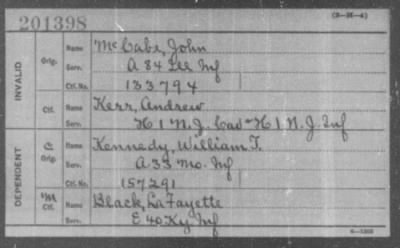 201398
(3-216-a)
INVALID
Orig.
Name McCabe, John
Serv. A 84 Ill Inf
Ctf. No. 133794
Ctf.
Name Kerr, Andrew
Serv. H 1 N.J. Cav & H 1 N.J. Inf
DEPENDENT
C
Orig.
Name Kennedy, William T.
Serv. A 33 Mo. Inf
Ctf. No. 157291
M
Ctf.
Name Black, LaFayette
Serv. E 40 Ky Inf